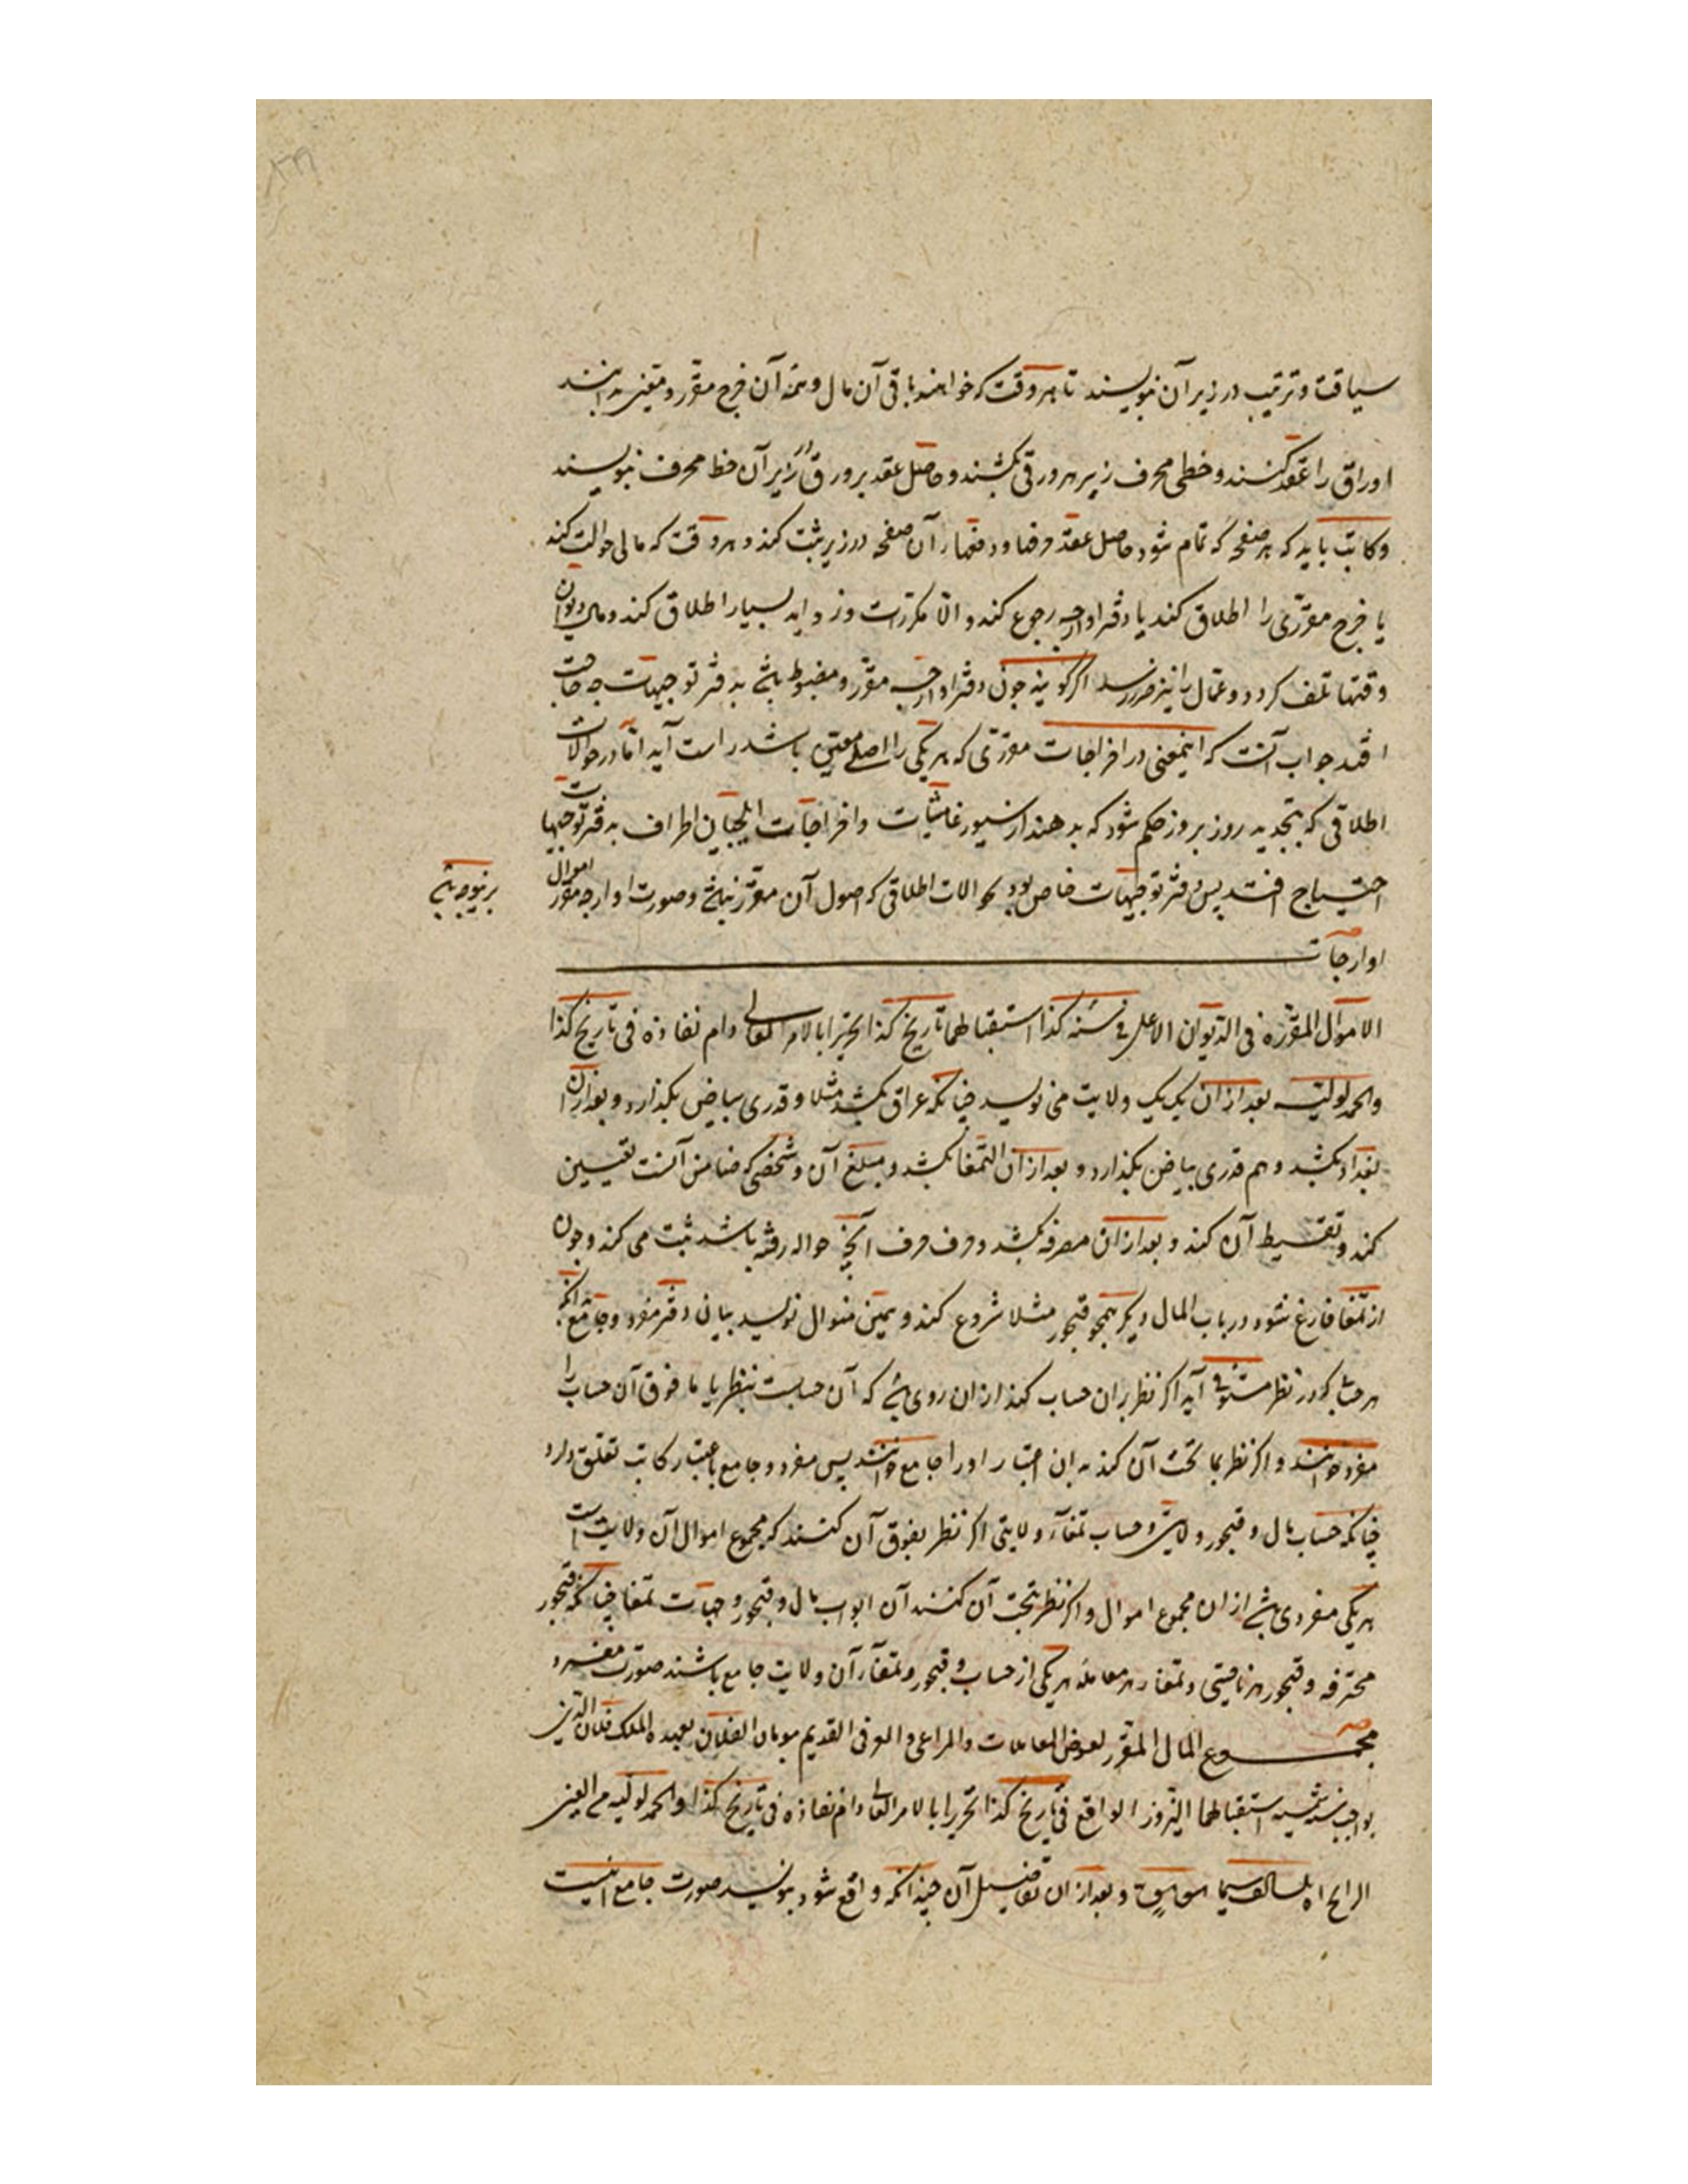 سیاقت و ترتیب در زیر آن بنویسند تا هر وقت که خواهند باقی آن مال و تتمه آن خرج مقرر و متعین بدانند
اوراق را عقد کنند و خطی محرف زیر هر ورقی بکشند و حاصل عقد بر ورق در زیر آن خط محرف بنویسند
و کاتب باید که هر صفحه که تمام شود حاصل عقد آن صفحه در زیر ثبت کند و هر وقت که مالی حوالت کند
یا خرج مقرری را اطلاق کند با دفتر اوارجه رجوع کند و الا مکررات و زواید بسیار اطلاق کند و مال دیوان
وقتها تلف کردد و عمال را نیز ضرر رسد اکر کویند چون دفتر اوارجه مقرر و مضبوط باشد به دفتر توجیهات چه حاجت
افتد جواب آنست که اینمعنی در اخراجات مقرری که هر یکی را اصلی معین باشد راست آید اما در حوالات
اطلاقی که بتجدید روز بروز حکم شود که بدهند از و اخراجات ایلچیان اطراف به دفتر توجیهات
احتیاج افتد پس دفتر توجیهات خاص بود بحوالات اطلاقی که اصول آن مقرر نباشد و صورت اوارجه اموال مقرر
برینوجه باشد
اوارجات
الاموال المقررة فی الدیوان الاعلی فی سنه کذا استقبالها تاریخ کذا تحریرا بالامر العالی دام نفاذه فی تاریخ کذا
والحمد لولیه بعد از آن یک یک ولایت می نویسد چنانکه عراق بکشد مثلا و قدری بیاض بکذارد و بعد از آن
بغداد بکشد و هم قدری بیاض بکذارد و بعد از آن التمغا بکشد و مبلغ آن و شخصی که ضامن آنست تعیین
کند و تقسیط آن کند و بعد از آن مصرفه بکشد و حرف حرف آنچه حواله رفته باشد ثبت می کند و چون
از تمغا فارغ شود در باب المال دیکر همچو قبجور مثلا شروع کند و بهمین منوال نویسد بیان دفتر مفرد و جامع بدانکه
هر حساب که در نظر مستوفی آید اکر نظر بران حساب کند ازان روی که آن حسابست بنظر با ما فوق آن حساب را
مفرد خوانند و اکر نظر بما تحت آن کند بدان اعتبار او را جامع خوانند پس مفرد و جامع باعتبار کاتب تعلق دارد
چنانکه حساب مال و قبجور ولایتی و حساب تمغاء ولایتی اکر نظر بفوق آن کنند که مجموع اموال آن ولایت است
هر یکی مفردی باشد از ان مجموع اموال و اکر نظر بتحت آن کنند آن ابواب مال و قبجور و جهات تمغا چنانکه قبجور
محترفه و قبجور هر ناحیتی و تمغاء هر معامله هر یکی از حساب و قبجور و تمغاء آن ولایت جامع باشند صورت مفرد
مجموع المال المقرر المعاملات والمراعی القدیم الفلان بعهدة الملک فلان الدین
بواجب سنة استقبالها النیروز الواقع فی تاریخ کذا تحریرا بالامر العالی دام نفاذه فی تاریخ کذا والحمد لولیه
و بعد از ان تفاصیل آن چنانکه واقع شود بنویسد صورت جامع اینست